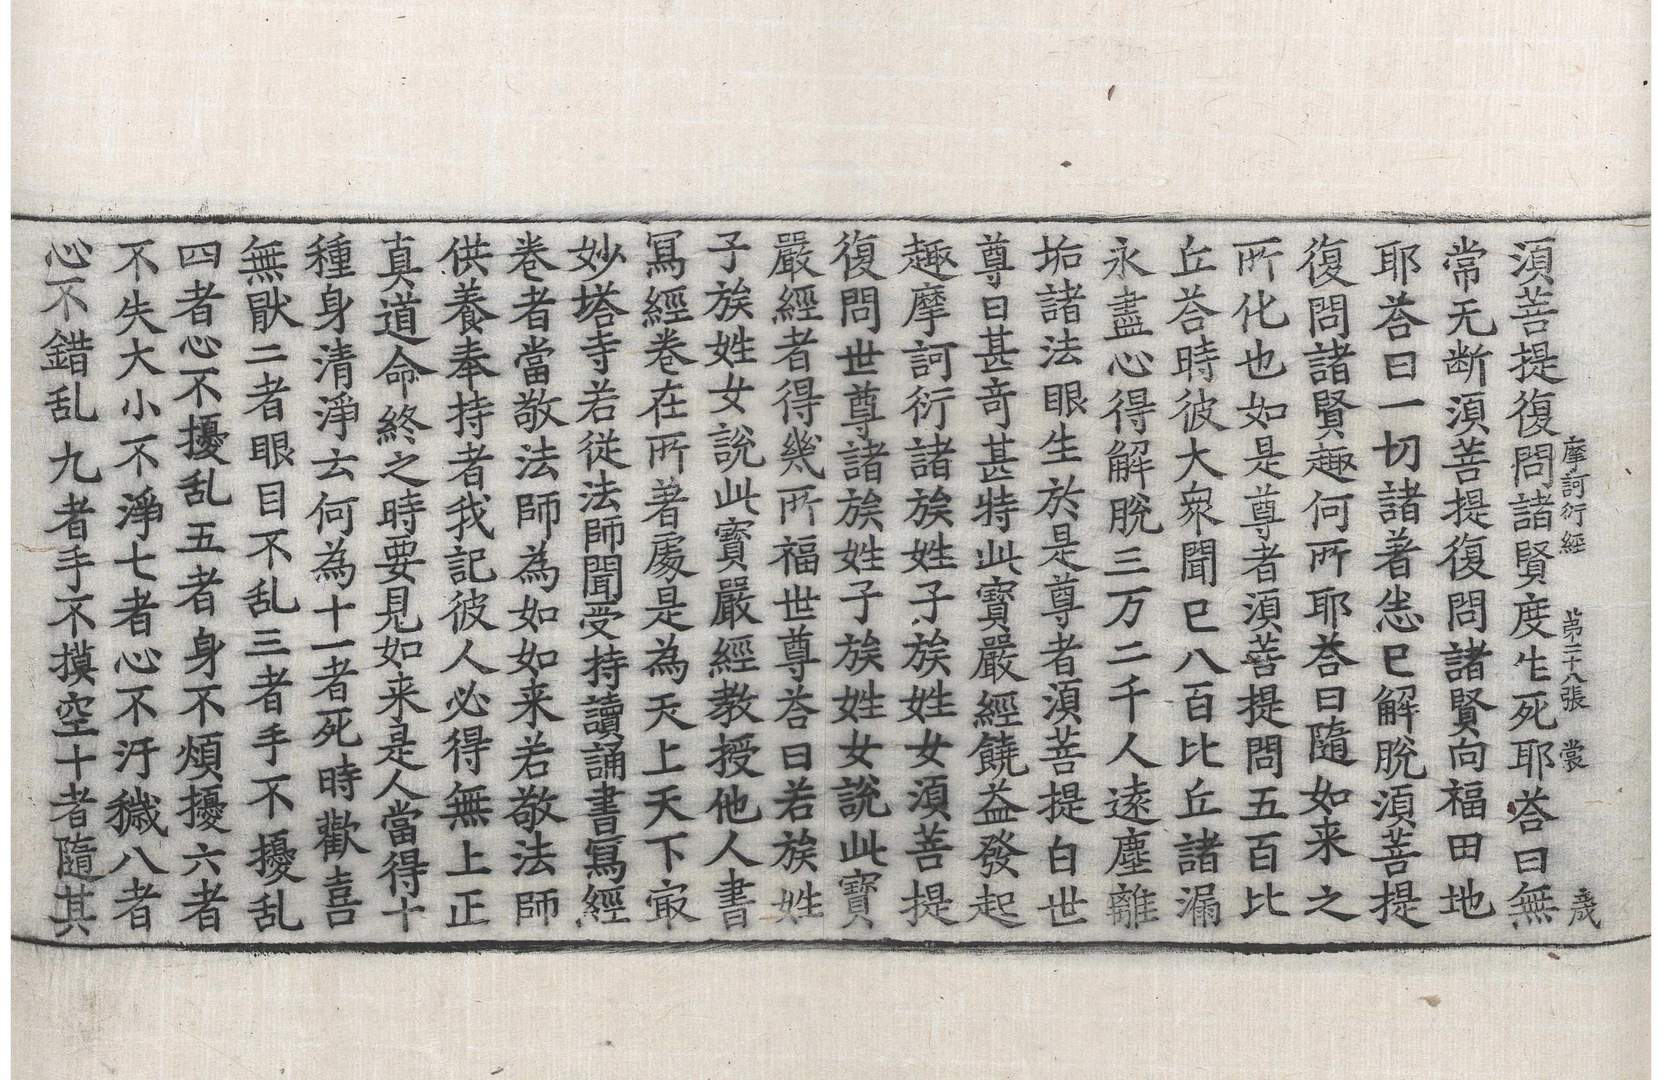 摩訶衍經 第二十八張 裳 彥成
湏菩提復問諸賢度生死耶荅曰無
常无断湏菩提復問諸賢向福田地
耶荅曰一切諸著㤀已解脫湏菩提
復問諸賢趣何所耶荅曰隨如来之
所化也如是尊者湏菩提問五百比
丘荅時彼大衆聞已八百比丘諸漏
永盡心得解脫三万二千人遠塵離
垢諸法眼生於是尊者湏菩提白世
尊曰甚奇甚特此寶嚴經饒益發起
趣摩訶衍諸族姓子族姓女湏菩提
復問世尊諸族姓子族姓女說此寶
嚴經者得幾所福世尊荅曰若族姓
子族姓女說此寶嚴經教授他人書
冩經卷在所著處是為天上天下冣
妙塔寺若從法師聞受持讀誦書冩經
卷者當敬法師為如如来若敬法師
供養奉持者我記彼人必得無上正
真道命終之時要見如来是人當得十
種身清淨云何為十一者死時歡喜
無猒二者眼目不乱三者手不擾乱
四者心不擾乱五者身不煩擾六者
不失大小不淨七者心不汙穢八者
心不錯乱九者手不摸空十者隨其